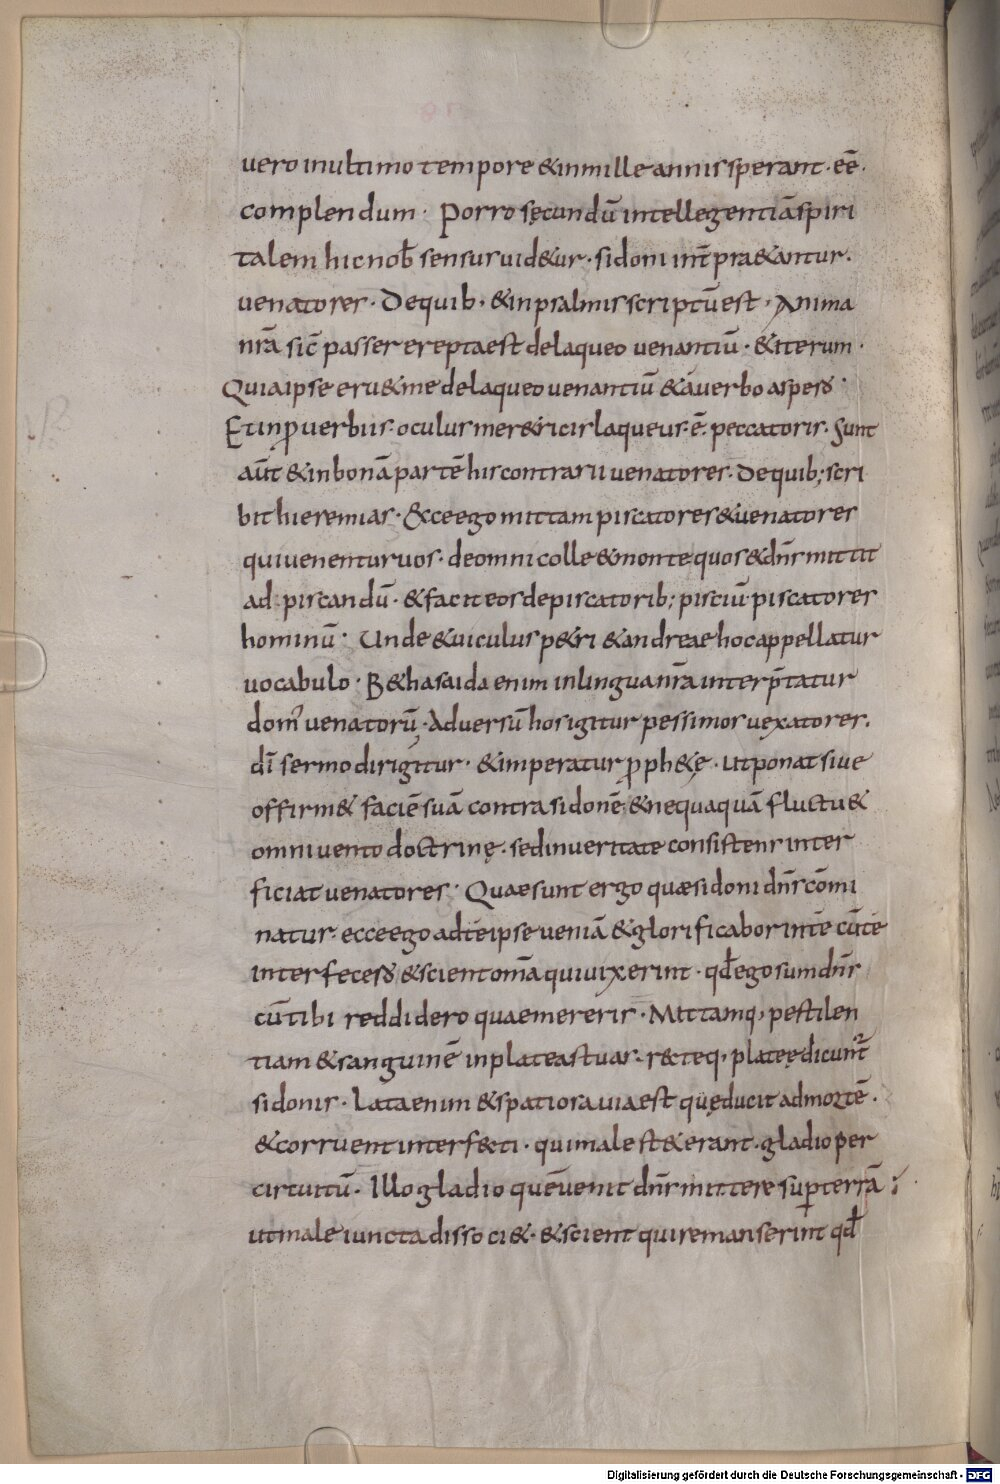 vero inultimo tempore &inmille annissperant· eē·
complendum· Porro sęcundū intellegentiāspiri
talem hicnob̄ sensusuid&ur· sidoni int̄pra&antur·
venatores· Dequib· &inpsalmisscriptūest· Anima
nr̄a sic̄ passer ereptaest delaqueo venantiū· &iterum·
Quiaipse eru&me delaqueovenantiū &áverbo aspero·
Etinꝓverbiis· oculusmer&ricislaqueus·ē· peccatoris· Sunt
aūt &inbonāpartē hiscontrarii venatores· Dequib; scri
bit hieremias· Ecceego mittam piscatores&venatores
quivenenturvos· deomni colle &monte quos&dn̄smittit
ad piscandū· &faciteosdepiscatorib; pisciū piscatores
hominū· Unde &viculusp&ri &andreaehocappellatur
vocabulo· B&hasaida enim inlinguanr̄ainterp̄tatur
dom' venatorū· Adversū hosigitur pessimosvexatores·
dī sermodirigitur· &imperatur ꝓph&ę· utponatsive
offirm& faciēsuā contrasidonē &nequaquā fluctu&
omnivento doctrinę· sedinveritate consistens inter
ficiat venatores· Quaesunt ergo quæsidoni dn̄scōmi
natur· ecceego adteipse veniā &glorificaborintē cūte
interfecero &scientomā quivixerint· qd̄egosumdn̄s
cūtibi reddidero quaemereris· Mittamq, pestilen
tiam &sanguinē inplateastuas· r&teq, plateędicunt̄
sidonis· Lataenim &spatiosaviaest quęducit admortē·
&corruent interfecti· quimale st&erant· gladioper
circuitū· Illogladio quēvenit dn̄smittere sup̄terrā;
utmale iuncta dissoci&· &scient quiremanserint qd̄
Digitalisierung gefördert durch die Deutsche Forschungsgemeinschaft - DFG